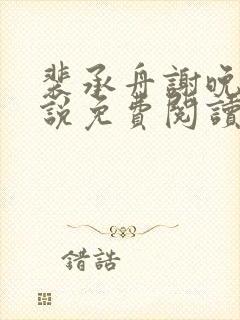 裴承舟謝晚
說免費閱讀
錯誥